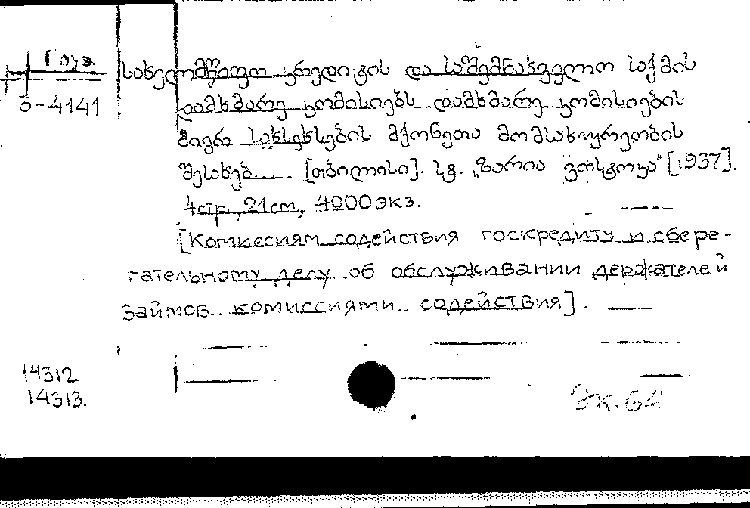 Груз.
Э-4141
სახელმწიფო კრედიტის და საშემნახველო საქმის
დამხმარე კომისიებს დამხმარე კომისიების
მიერ სესხების მქონეთა მომსახურეობის
შესახებ. [თბილისი]. სტ. „ზარია ვოსტოკა“ [1937].
4 стр., 21 cm, 4000 экз.
[Комиссиям содействия госкредиту и сбере-
гательному делу об обслуживании держателей
займов комиссиями содействия].
14312
14313.
Эк. 64